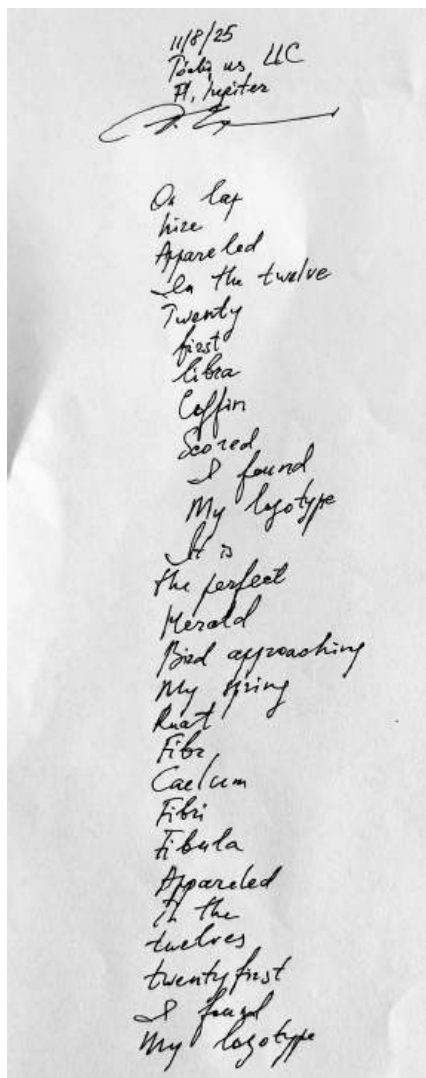 11/8/25
us, LLC
Fl, Jupiter
On lap
hire
Appareled
In the twelve
Twenty
first
libra
Coffin
Scored
I found
My logotype
It is
the perfect
Herald
Bird approaching
My spring
Ruat
Fibr,
Caelum
Fibri
Fibula
Appareled
In the
twelves
twentyfirst
I found
My logotype